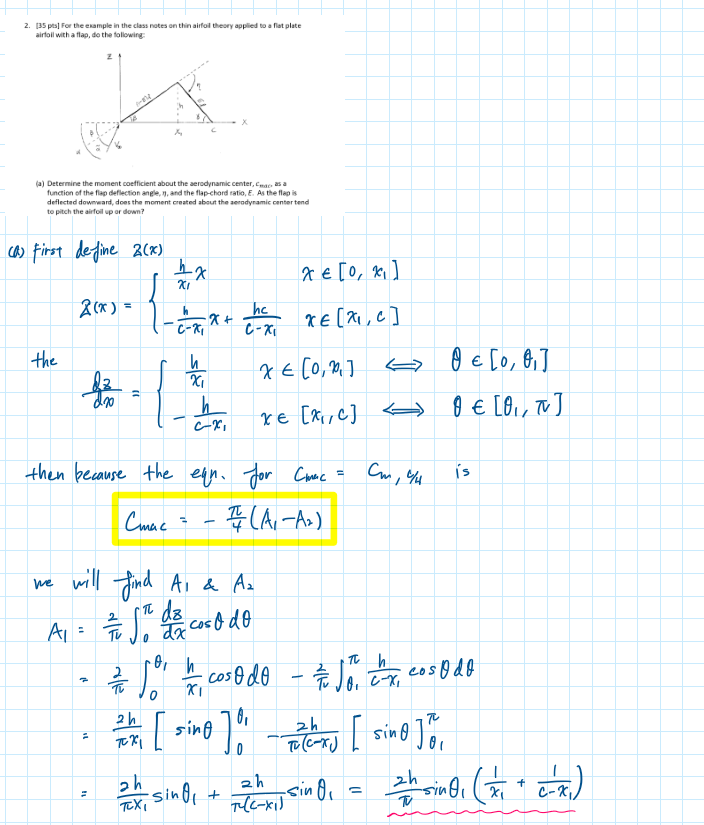 2. [35 pts] For the example in the class notes on thin airfoil theory applied to a flat plate
airfoil with a flap, do the following:
z
η
h
x
x₁
c
(a) Determine the moment coefficient about the aerodynamic center, c_mac, as a
function of the flap deflection angle, η, and the flap-chord ratio, E. As the flap is
deflected downward, does the moment created about the aerodynamic center tend
to pitch the airfoil up or down?
(a) first define z(x)
z(x) = { h/x₁ x    x ∈ [0, x₁]
-h/(c-x₁) x + hc/(c-x₁)    x ∈ [x₁, c]
the
dz/dx = { h/x₁    x ∈ [0, x₁] ⟺ θ ∈ [0, θ₁]
-h/(c-x₁)    x ∈ [x₁, c] ⟺ θ ∈ [θ₁, π]
then because the eqn. for Cmac = Cm, c/4 is
Cmac = - π/4 (A₁ - A₂)
we will find A₁ & A₂
A₁ = 2/π ∫₀^π dz/dx cosθ dθ
= 2/π ∫₀^θ₁ h/x₁ cosθ dθ - 2/π ∫_θ₁^π h/(c-x₁) cosθ dθ
= 2h/(πx₁) [ sinθ ]₀^θ₁ - 2h/(π(c-x₁)) [ sinθ ]_θ₁^π
= 2h/(πx₁) sinθ₁ + 2h/(π(c-x₁)) sinθ₁ = 2h/π sinθ₁ ( 1/x₁ + 1/(c-x₁) )